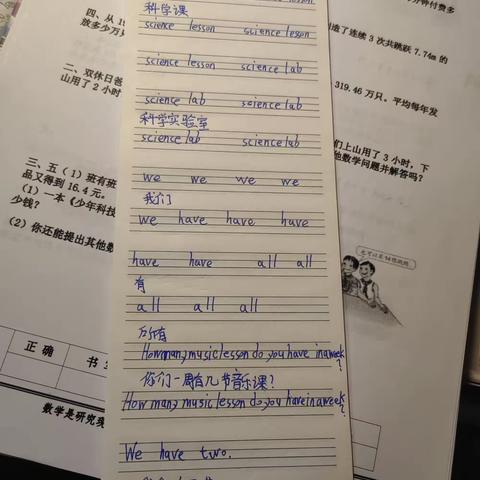 科学课
science lesson science lesson
science lesson science lab
science lab science lab
科学实验室
science lab science lab
we we we we
我们
we have have have
have have all all
有
all all all
所有
How many music lesson do you have in a week?
你们一周有几节音乐课?
How many music lesson do you have in a week?
We have two.
四、从 19
放多少万只
二、双休日爸
山用了 2 小时
三、五(1)班有班
品又得到 16.4 元。
(1)一本《少年科技
少钱?
(2)你还能提出其他数
正确
书
数学是研究
分钟付费多
造了连续 3 次共跳跃 7.74m 的
319.46 万只。平均每年发
们上山用了 3 小时,下
他数学问题并解答吗?